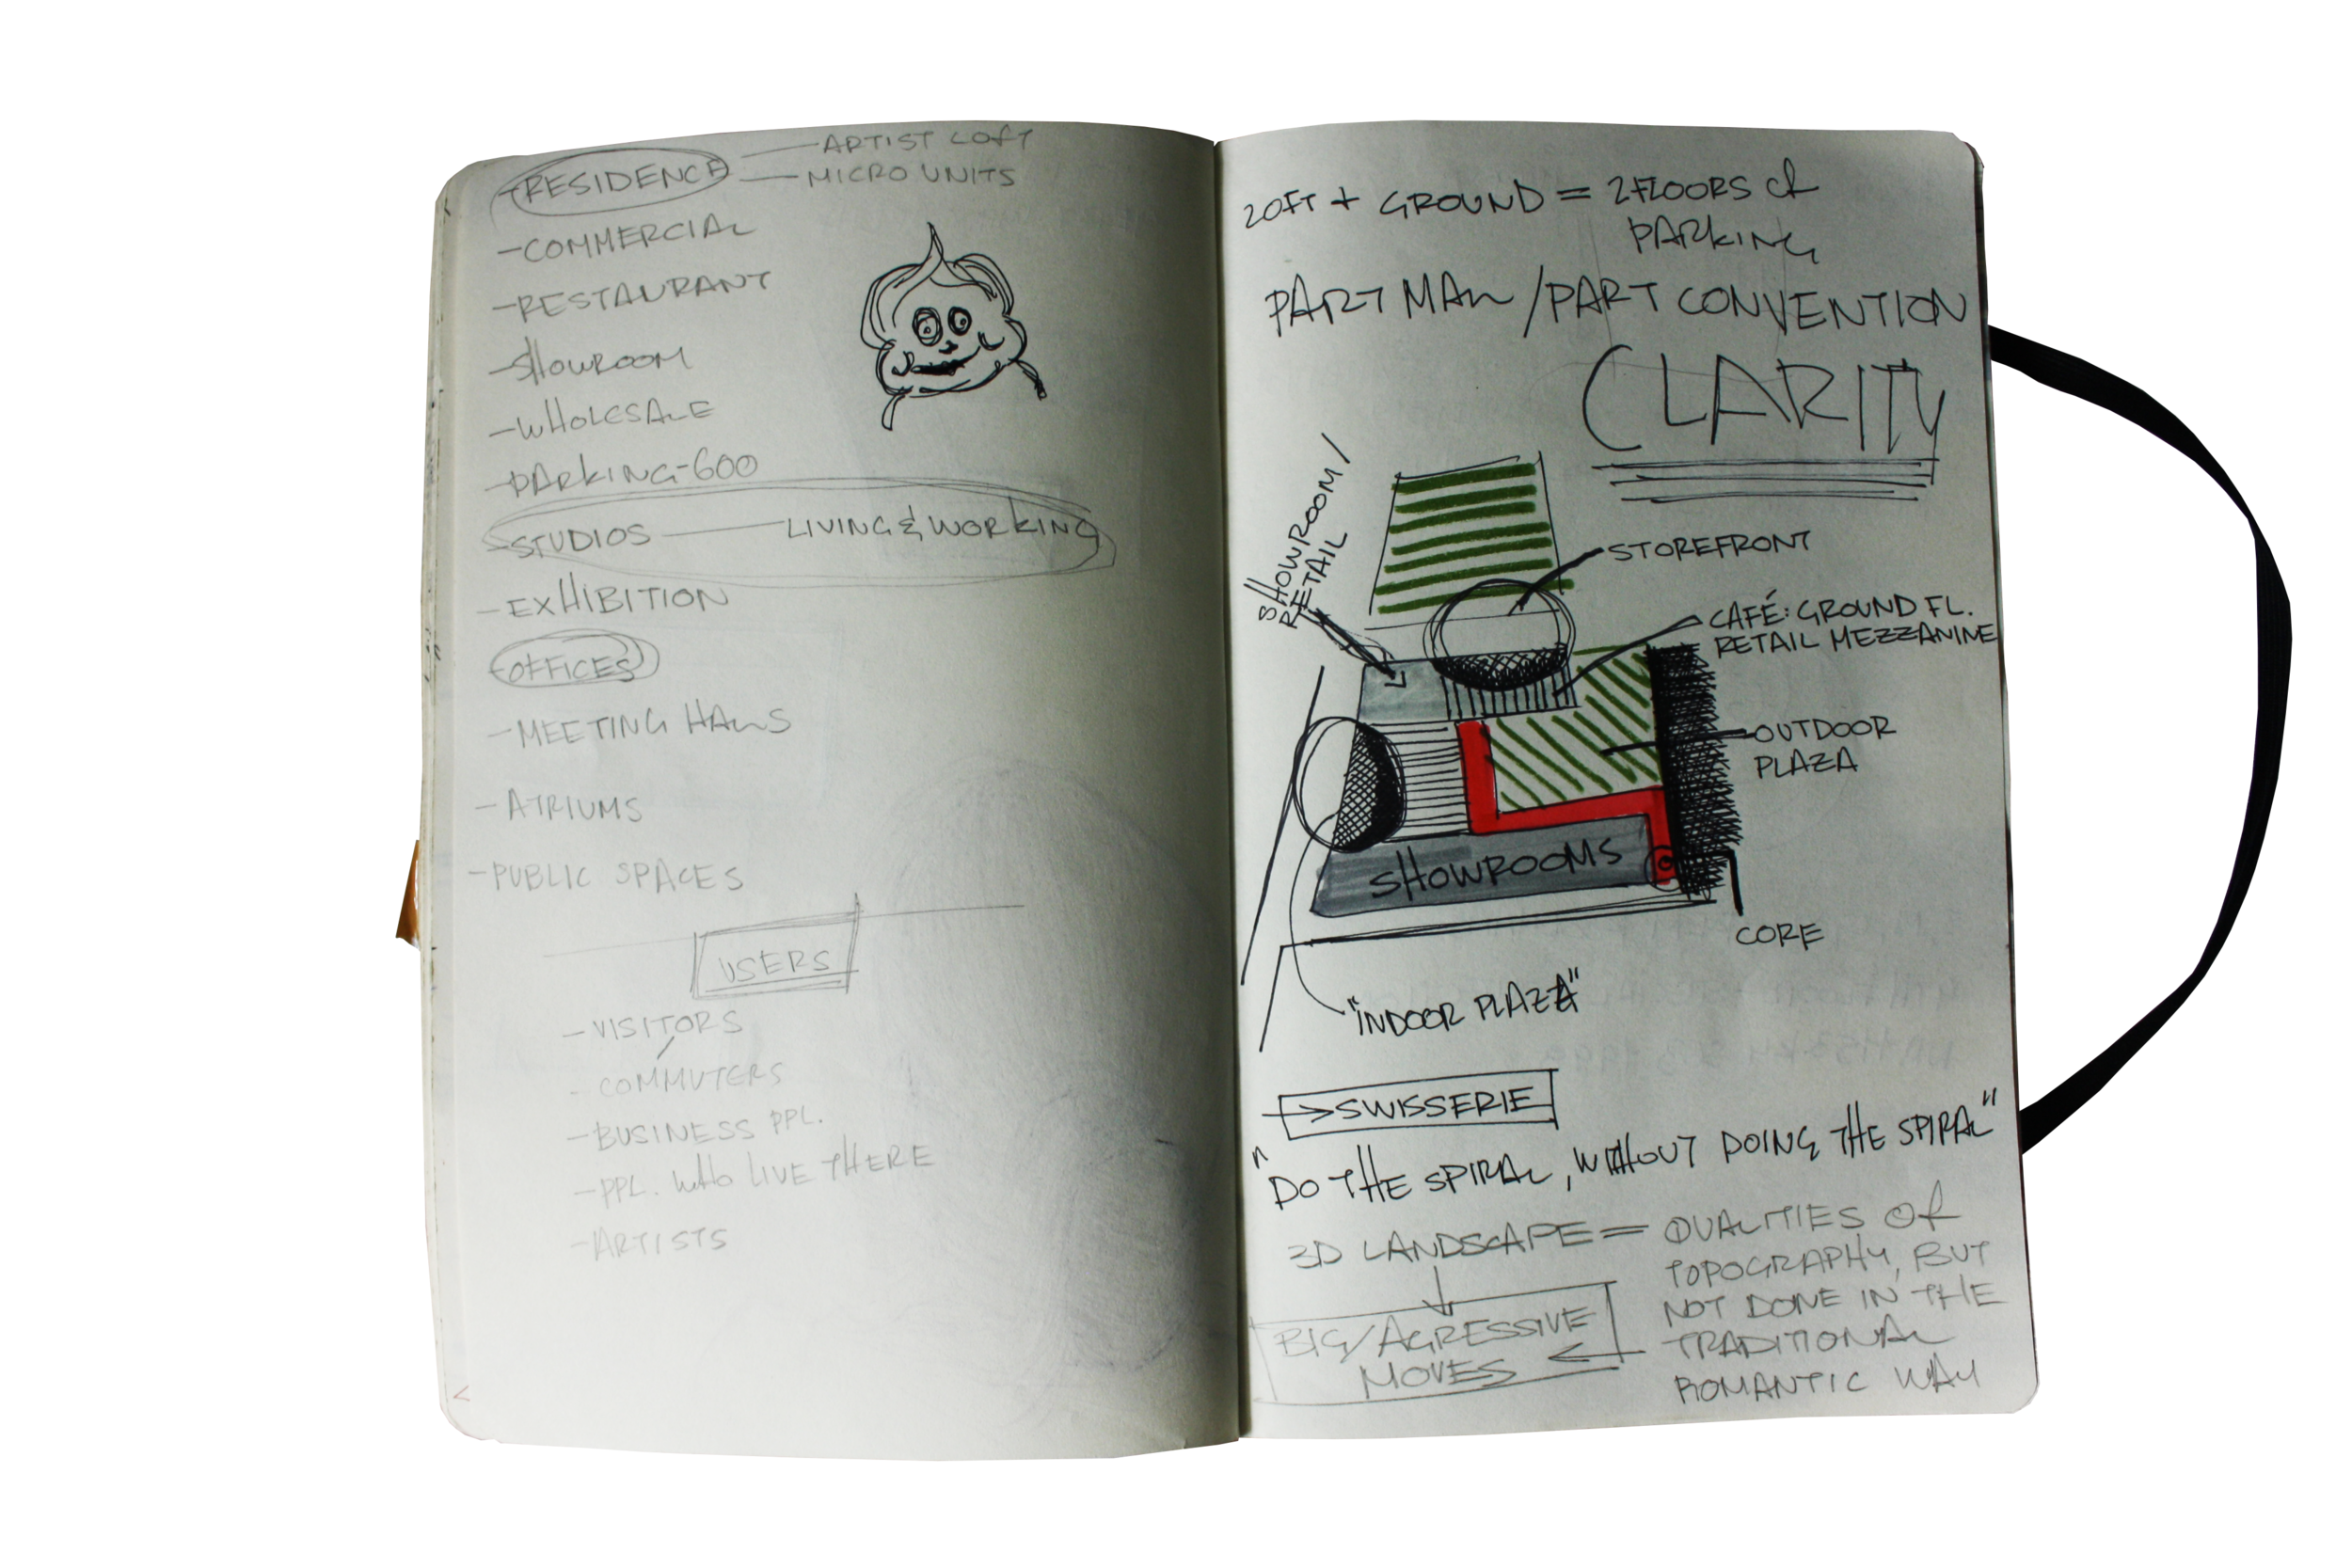 -RESIDENCE — ARTIST LOFT
— MICRO UNITS
-COMMERCIAL
-RESTAURANT
-SHOWROOM
-WHOLESALE
-PARKING-600
-STUDIOS — LIVING & WORKING
-EXHIBITION
-OFFICES
-MEETING HALLS
-ATRIUMS
-PUBLIC SPACES
USERS
-VISITORS
-COMMUTERS
-BUSINESS PPL.
-PPL. WHO LIVE THERE
-ARTISTS
20FT + GROUND = 2 FLOORS OF
PARKING
PART MALL / PART CONVENTION
CLARITY
SHOWROOM /
RETAIL
STOREFRONT
CAFÉ: GROUND FL.
RETAIL MEZZANINE
OUTDOOR
PLAZA
SHOWROOMS
CORE
"INDOOR PLAZA"
→SWISSERIE
"DO THE SPIRAL, WITHOUT DOING THE SPIRAL"
3D LANDSCAPE = QUALITIES OF
TOPOGRAPHY, BUT
NOT DONE IN THE
TRADITIONAL
ROMANTIC WAY
BIG/AGRESSIVE
MOVES